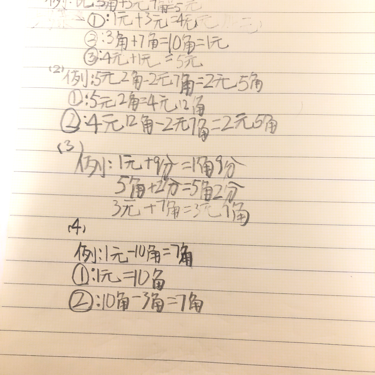 例:1元3角+3元7角=5元
①:1元+3元=4元
②:3角+7角=10角=1元
③:4元+1元=5元
(2)例:5元2角-2元7角=2元5角
①:5元2角=4元12角
②:4元12角-2元7角=2元5角
(3)
例:1元+9分=1角9分
5角+2分=5角2分
3元+7角=3元7角
(4)
例:1元-10角=7角
①:1元=10角
②:10角-3角=7角